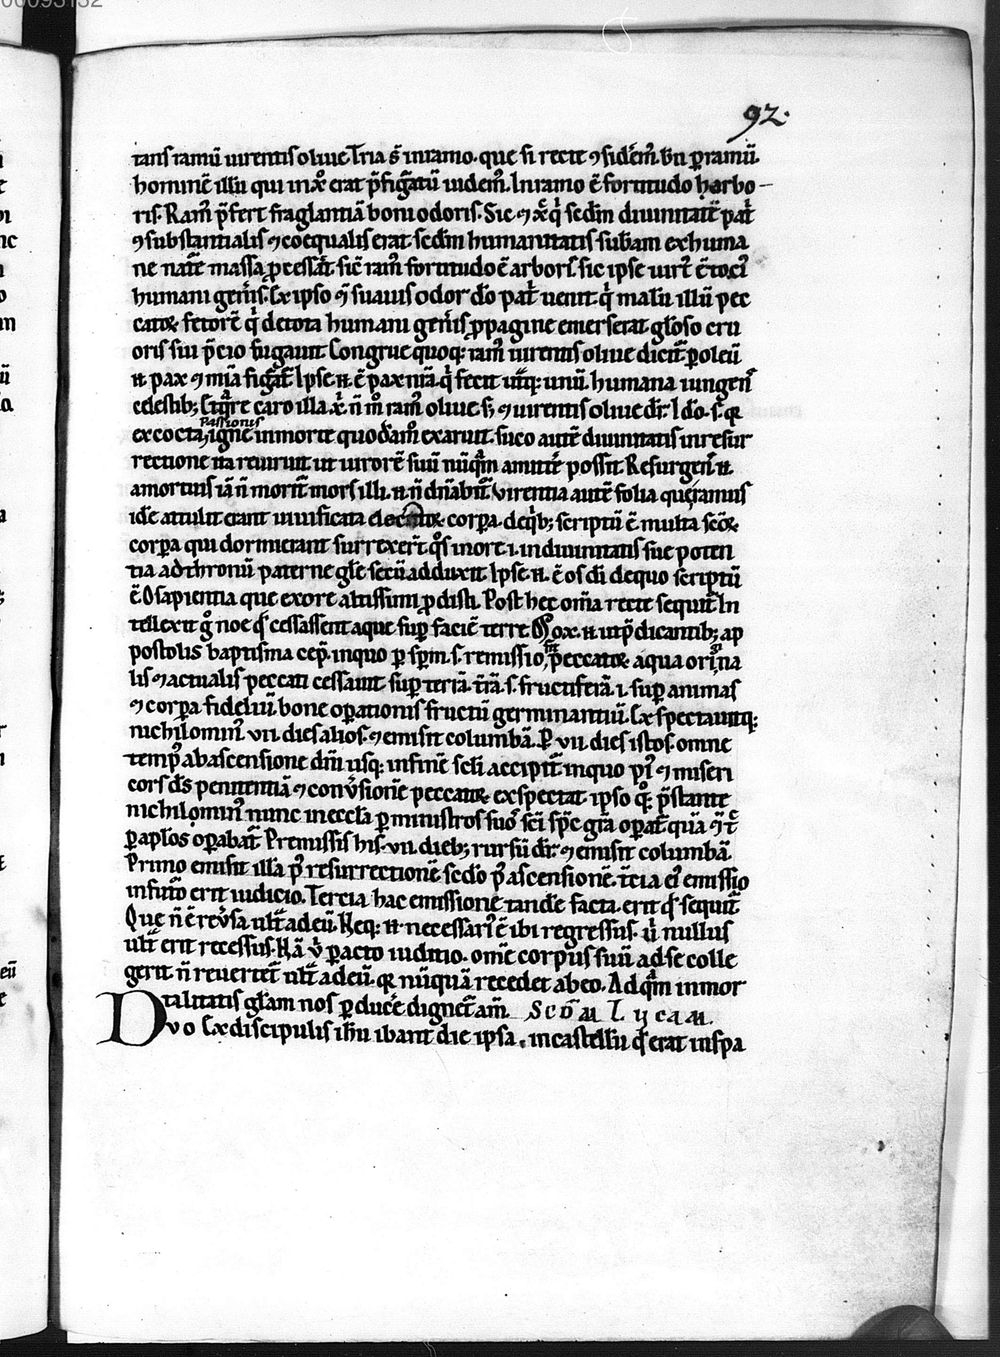 92.
tans ramū uirentis oliue. Tria s̄ in ramo. que si recte ꝯsidem᷒. bn̄ ꝑ ramū
hominē illū qui in xp̄o erat p̄figuratū uidem᷒. In ramo ē fortitudo harbo-
ris. Ram᷒ p̄fert fraglantiā boni odoris. Sic ⁊ xp̄c q̇ sedm̄ diuinitatē pat̄
ꝯsubstantialis ⁊ coequalis erat. sedm̄ humanitatis subam ex huma
ne nat̄e massa ꝓcessit. sic̄ ram᷒ fortitudo ē arboris. sic ipse uirt᷒ ē toci᷒
humani gen̄is. Ex ipso ⁊ suauis odor d̄o pat̄ uenit. q̇ malū illū pec
catoꝝ fetorē q̇ de tota humani gen̄is ꝓpagine emerserat gl̄oso cru
oris sui p̄cio fugauit. Congrue quoq; ram᷒ uirentis oliue dicit᷒. ꝑ oleū
n̄ pax ⁊ mīa figurat᷒. Ipse n̄ ē pax nr̄a. q̇ fecit utraq; unū. humana iungens
celestib; Et quare caro illa xp̄i n̄ m̊ ram᷒ oliue s; ⁊ uirentis oliue dr̄. Id̊o. s. q̄
excocta igne Passionis in morte quodam᷒ exaruit. suco autē diuinitatis in resur
rectione ita reuiruit ut uirorē suū nūquā amittere possit. Resurgens n̄
a mortuis iā n̄ morit᷒ mors illi. n̄ n̄ dn̄abit᷒. Virentia autē folia que ramus
ide attulit erant uiuificata corꝑa. de qb; scriptū ē multa scōꝝ
corꝑa qui dormierant surrexer̄t. q̊s in ore .i. in diuinitatis sue poten
tia ad thronū paterne gl̄e secū adduxit. Ipse .n̄. ē os dī de quo scriptū
ē O sapientia que ex ore altissimi ꝓdisti. Post hec om̄ia recte sequit᷒. In
tellexit g̊ noe q̊d cessassent aque sup̄ faciē terre. Mox .n̄. ut p̄dicantib; ap
postolis baptisma cep̄. in quo ꝑ sp̄m .s. fit remissio peccatoꝝ. aqua origina
lis ⁊ actualis peccati cessauit sup̄ terrā. tr̄ā .s. fructiferā .i. sup̄ animas
⁊ corꝑa fideliū bone oꝑationis fructū germinantiū. Expectauitq;
nichilomin᷒ .vii. dies alios. ⁊ emisit columbā. Ꝑ .vii. dies istos. omne
temp᷒ ab ascensione dn̄i usq; in finē scl̄i accipit᷒. in quo pi᷒ ⁊ miseri
cors d̄s penitentiā ⁊ conuersionē peccatoꝝ exspectat. ipso q̊q; p̄stante
nichilomin᷒ nunc in eccl̄a ꝑ ministros suos sc̄i sp̄c gr̄a oꝑat᷒ quā ⁊ tc̄
ꝑ apl̄os oꝑabat᷒. Premissis his .vii. dieb; rursū dr̄. ⁊ emisit columbā.
Primo emisit illā p᷒ resurrectionē. sedo p᷒ ascensionē. t̄cia ei᷒ emissio
in futuro erit iudicio. Tercia hac emissione tande facta. erit q̊d sequit᷒
Que n̄ ē reuersa ultra ad eū. Neq; n̄ necessari᷒ ē ibi regressus. u᷒ nullus
ultra erit recessus. Nā u᷒ ꝑacto iuditio. om̄e corpus suū ad se colle
gerit n̄ reuertet᷒ ultra ad eū. q̄ nūquā recedet ab eo. Ad quam inmor
talitatis gl̄am nos ꝑducere dignet᷒ am̄. Scd̄m Lucam.
Dvo Ex discipulis ihū ibant die ipsa. in castellū q̊d erat in spa